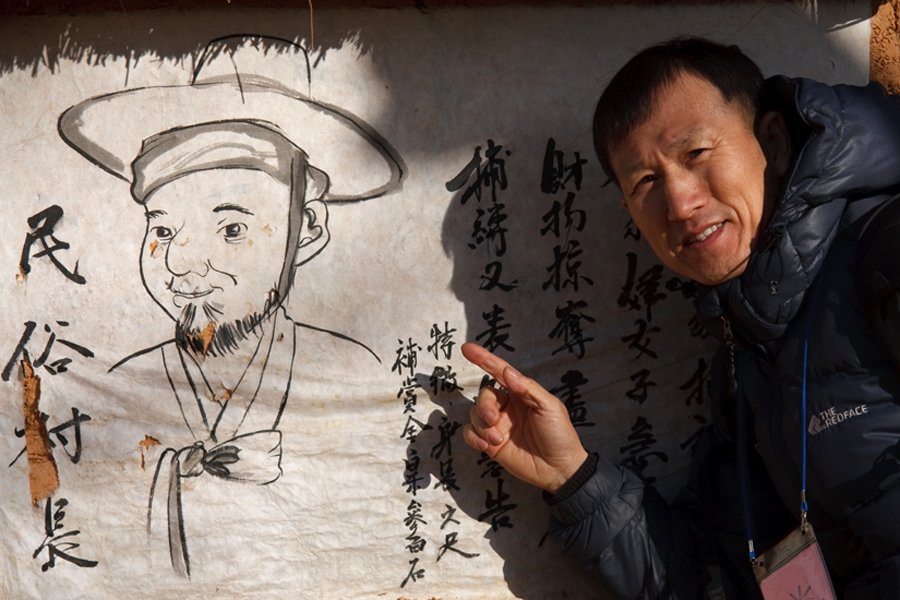 婦女子
財物掠奪盡
捕縛又表
告
特徵 身長 六尺
補賞金 粟 參百石
民俗村長
THE
REDFACE